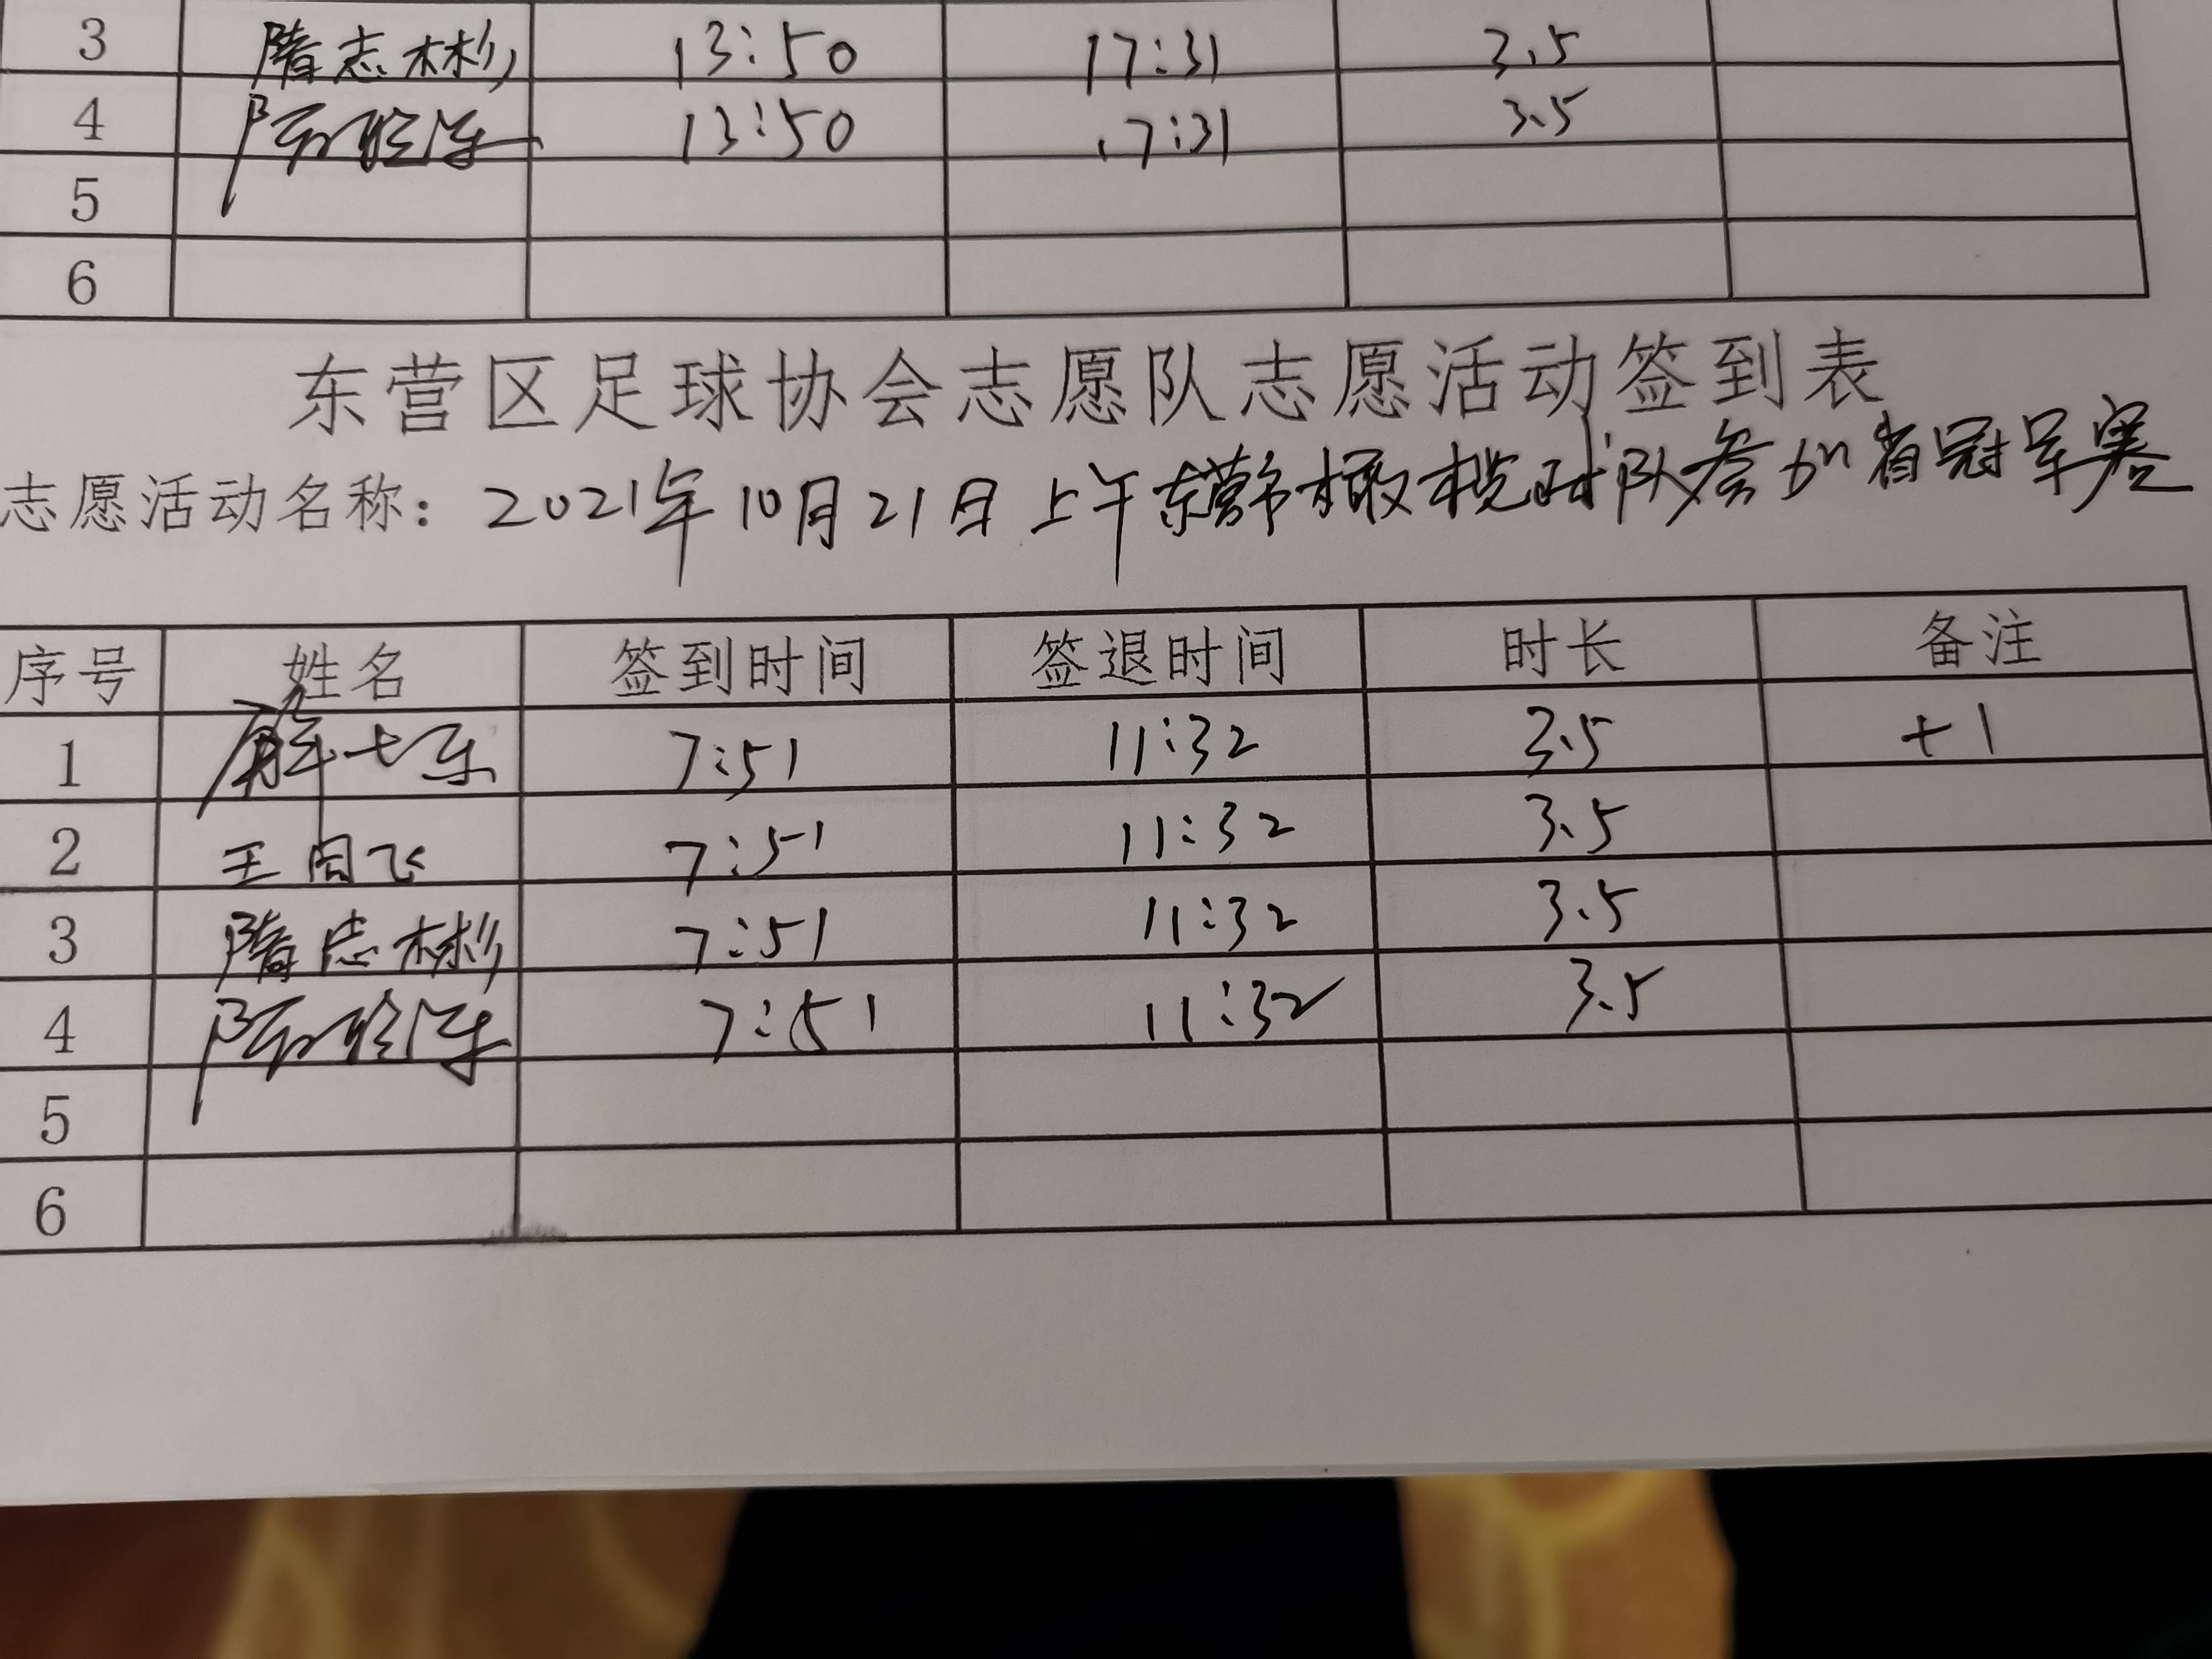 3 隋志彬 13:50 17:31 3.5
4 13:50 17:31 3.5
5
6
东营区足球协会志愿队志愿活动签到表
志愿活动名称：2021年10月21日上午东营市橄榄球队参加省冠军赛
序号 姓名 签到时间 签退时间 时长 备注
1 7:51 11:32 3.5 +1
2 王同飞 7:51 11:32 3.5
3 隋志彬 7:51 11:32 3.5
4 7:51 11:32 3.5
5
6